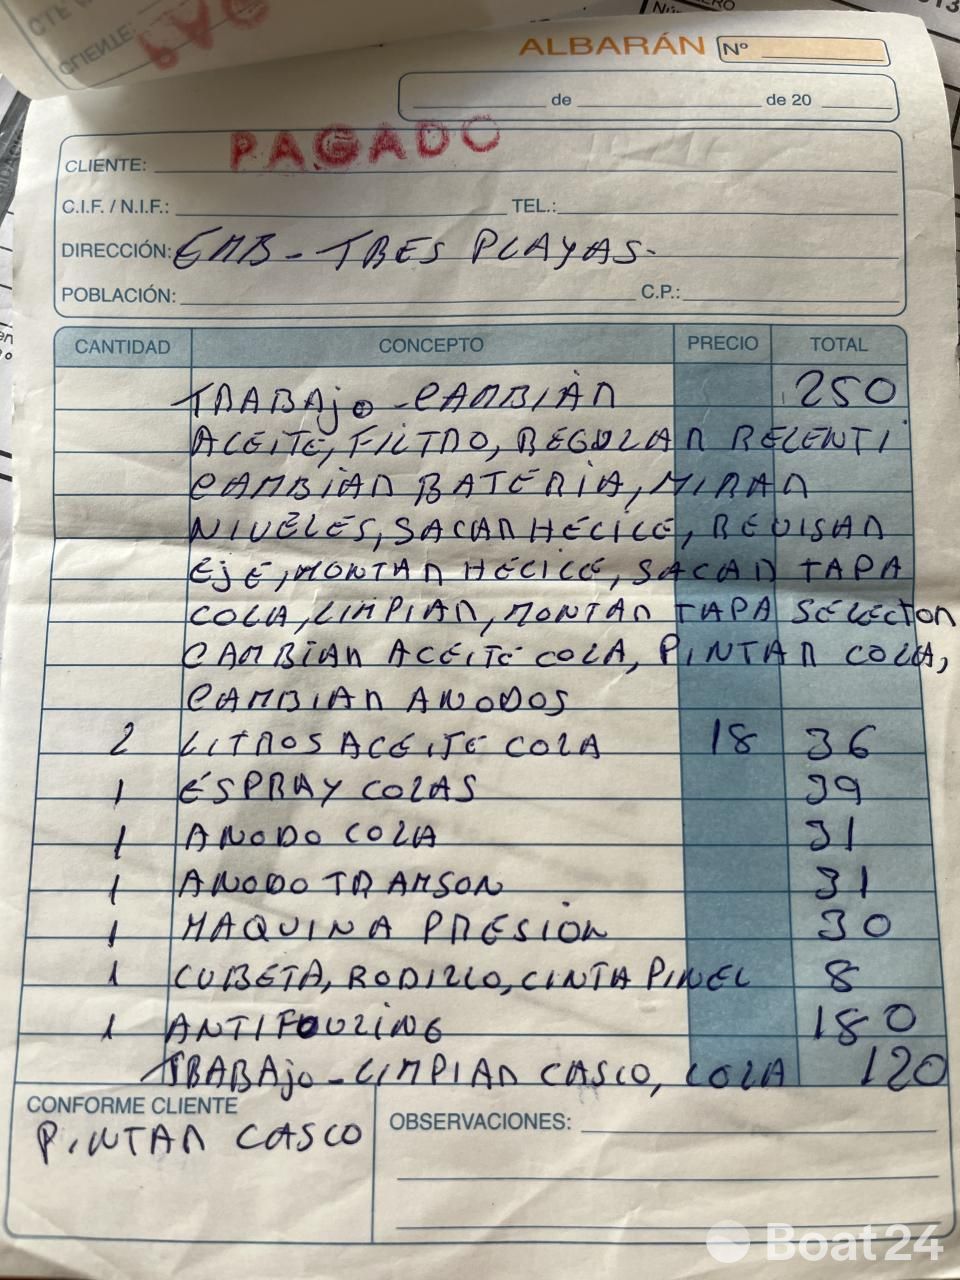 ALBARÁN Nº
de de 20
PAGADO
CLIENTE:
C.I.F. / N.I.F.: TEL.:
DIRECCIÓN: EMB - TRES PLAYAS.
POBLACIÓN: C.P.:
CANTIDAD CONCEPTO PRECIO TOTAL
TRABAJO - CAMBIAR 250
ACEITE, FILTRO, REGULAR RELENTI
CAMBIAR BATERIA, MIRAR
NIVELES, SACAR HELICE, REVISAR
EJE, MONTAR HELICE, SACAR TAPA
COLA, LIMPIAR, MONTAR TAPA SELECTOR
CAMBIAR ACEITE COLA, PINTAR COLA,
CAMBIAR ANODOS
2 LITROS ACEITE COLA 18 36
1 ESPRAY COLAS 39
1 ANODO COLA 31
1 ANODO TRAMSON 31
1 MAQUINA PRESION 30
1 CUBETA, RODILLO, CINTA PINEL 8
1 ANTIFOULING 180
TRABAJO - LIMPIAR CASCO, COLA 120
CONFORME CLIENTE
PINTAR CASCO
OBSERVACIONES:
Boat24